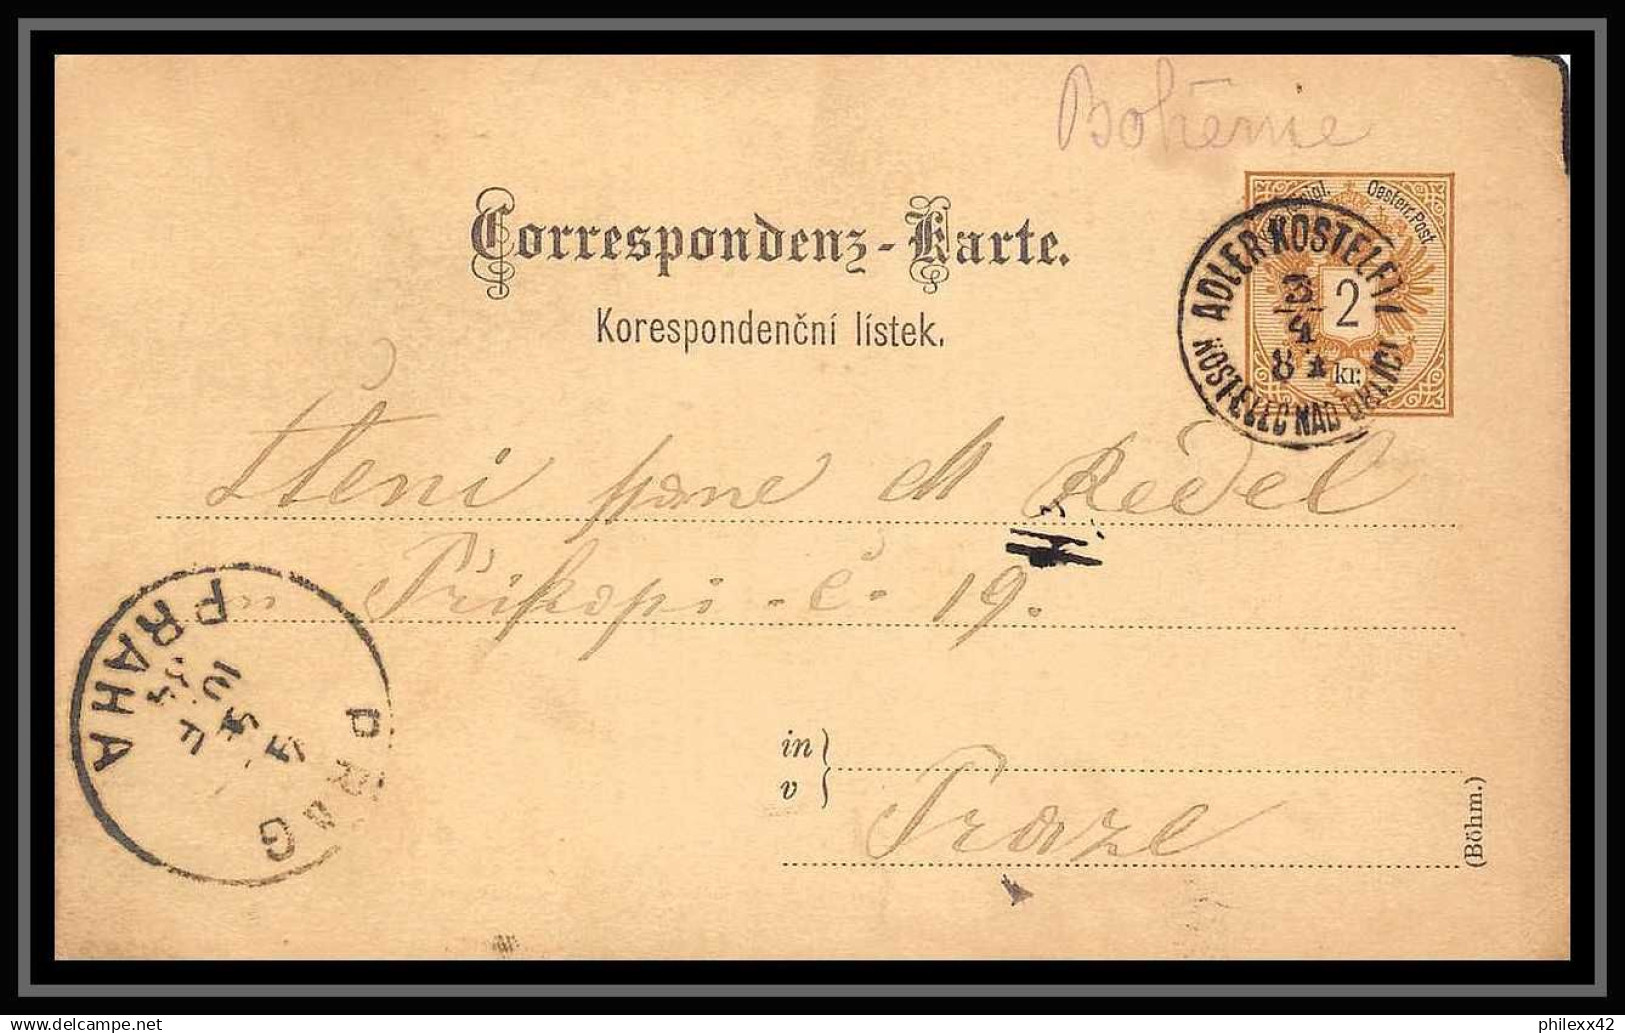 Bohême
Correspondenz-Karte.
Korespondenční lístek.
Oesterr. Post
2
kr.
ADLER KOSTELETZ
3
4
84
KOSTELEC NAD ORLICI
Ctěný pane M Redel
Příkopi - č. 19.
in
v
Praze
(Böhm.)
PRAG
PRAHA
philexx42